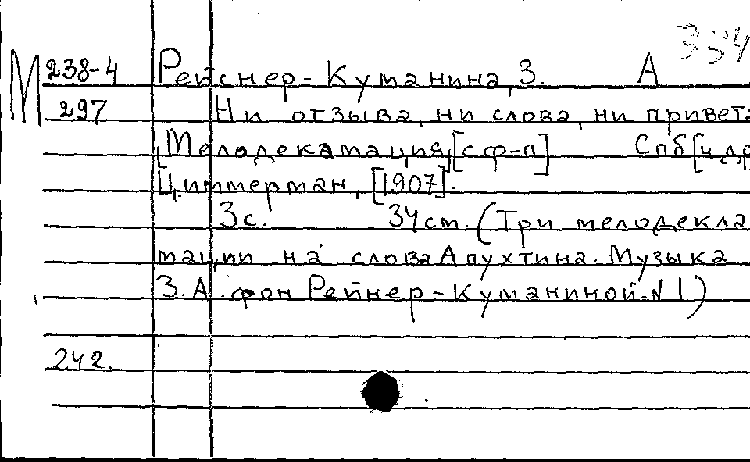 М 238-4 Рейснер-Куманина, З. А 354
297 Ни отзыва, ни слова, ни привета
[Мелодекамация] [с ф-п] Спб [и др
Циммерман, [1907].
3 с. 34 см. (Три мелодекла
мации на слова Апухтина. Музыка
З. А. фон Рейнер-Куманиной. N 1)
242.